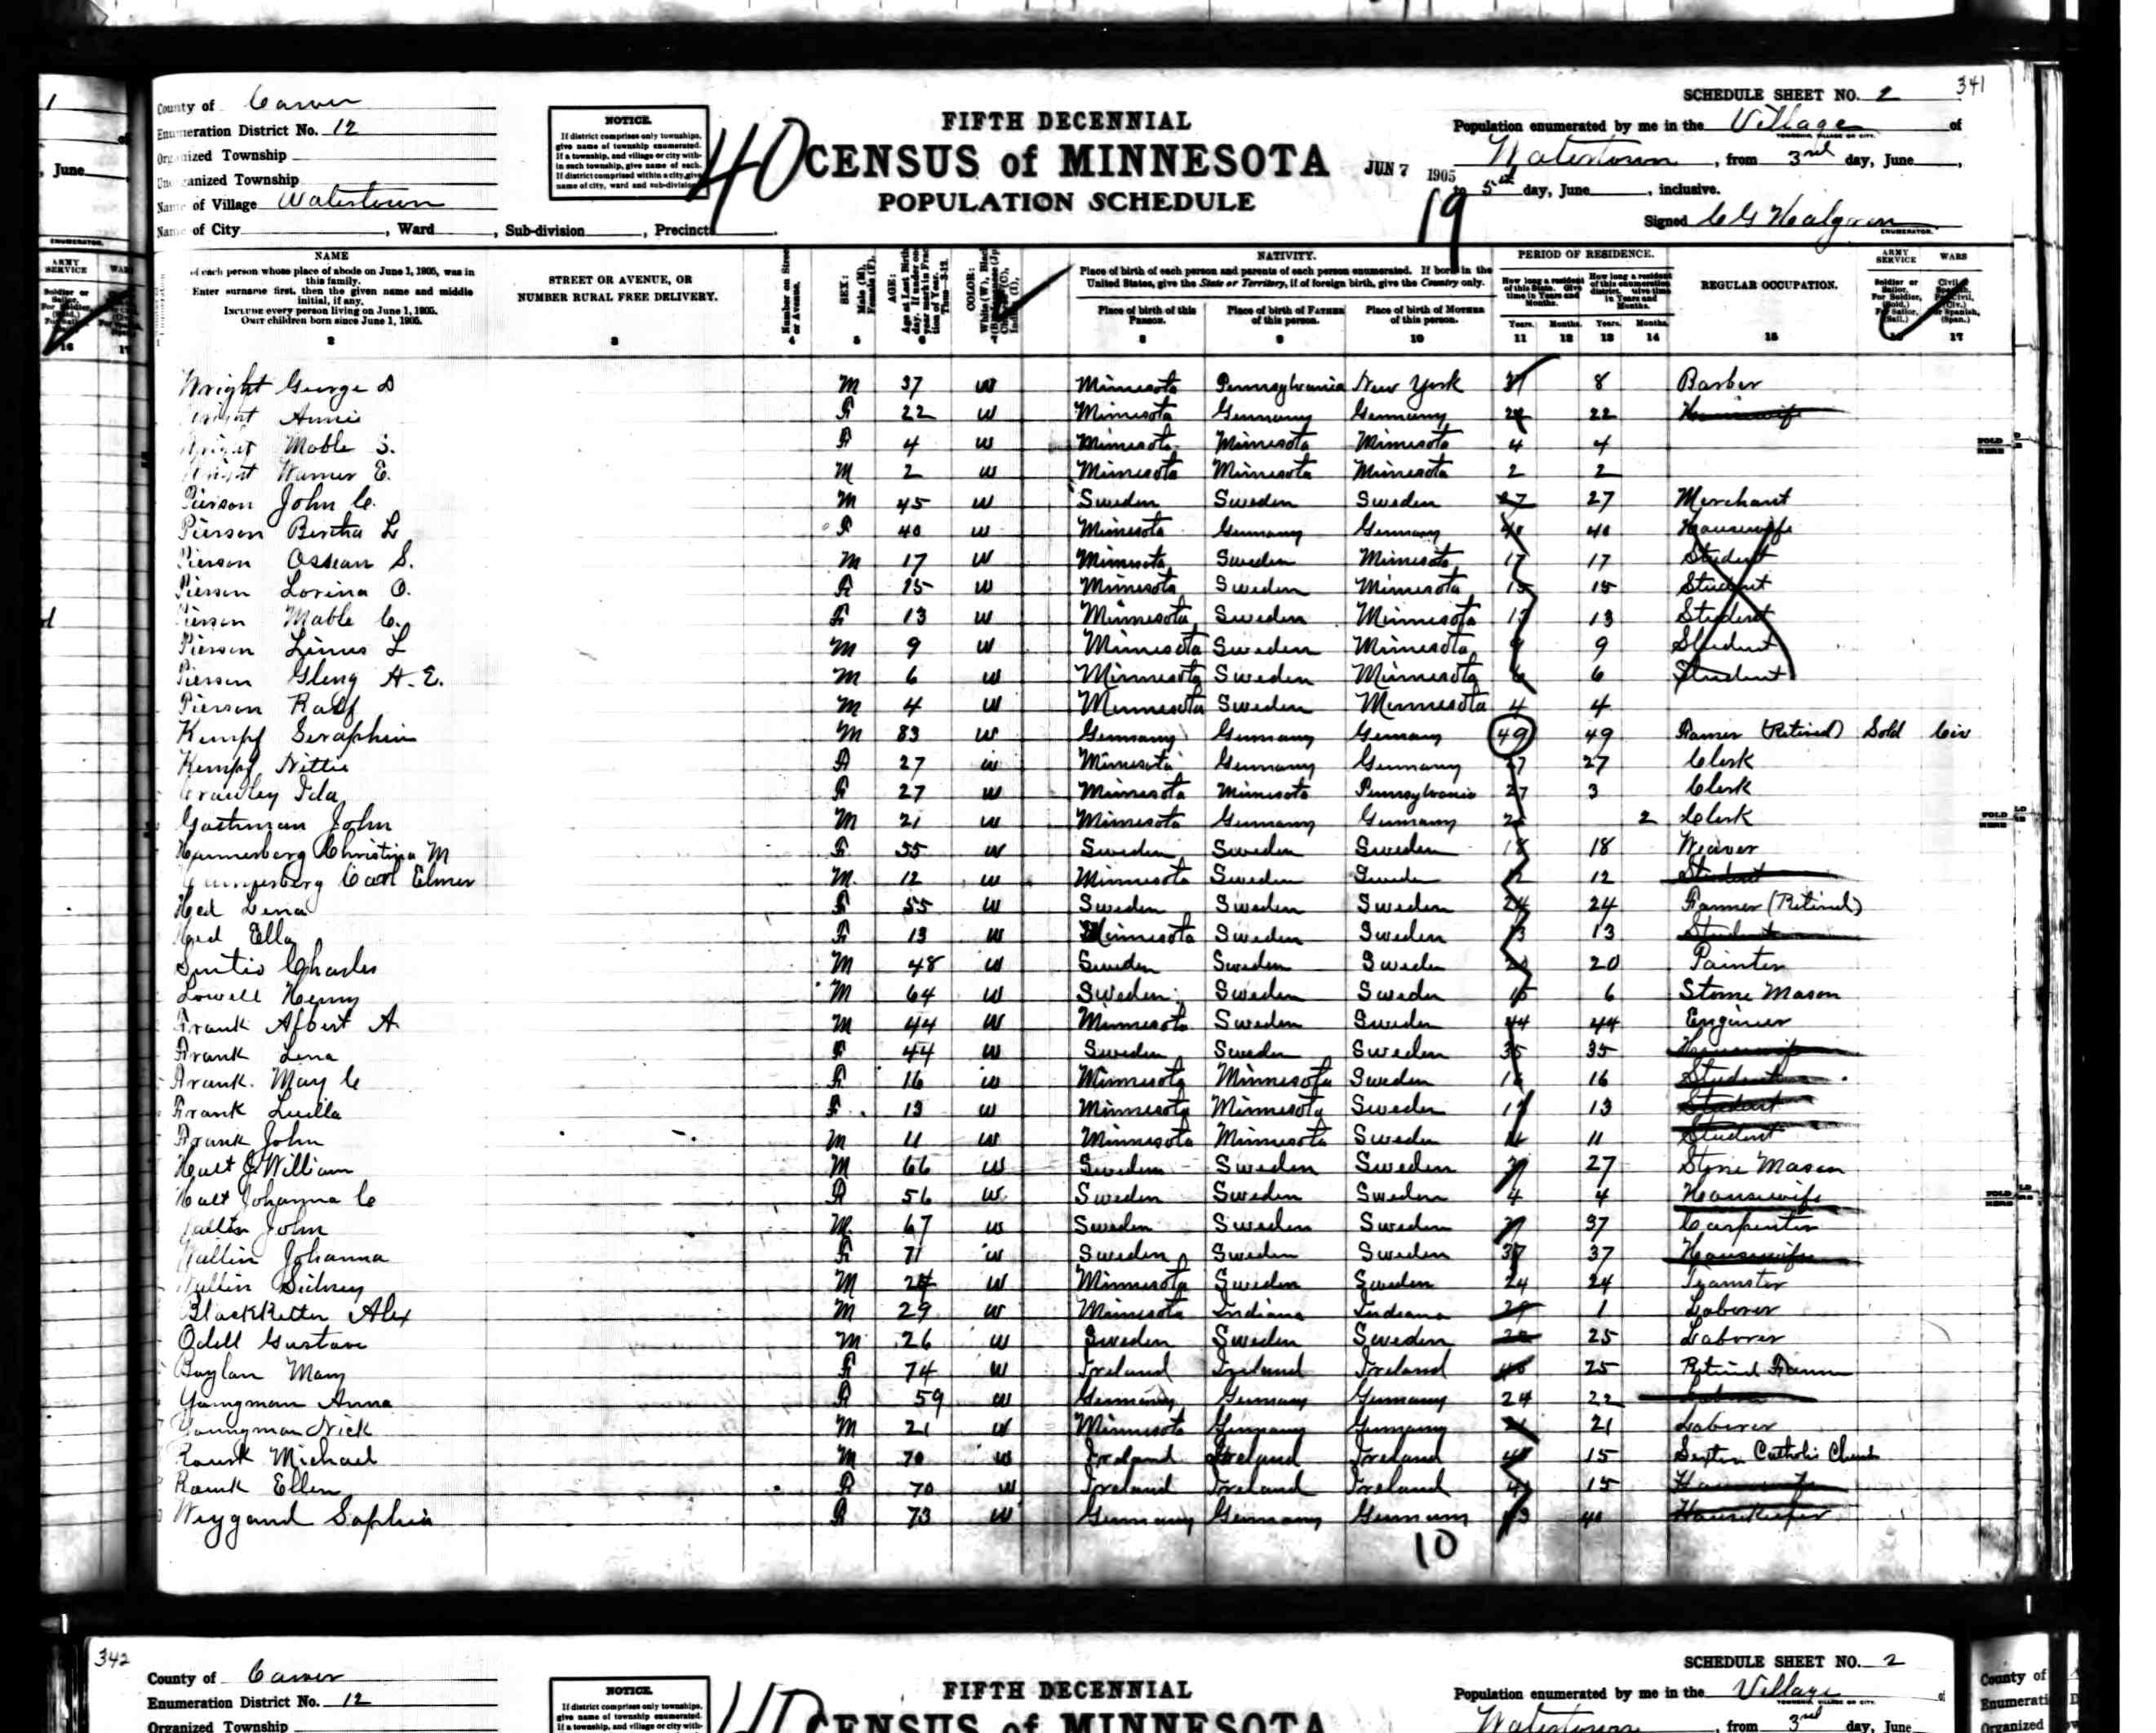 341
County of Carver
Enumeration District No. 12
Organized Township
Unorganized Township
Name of Village Watertown
Name of City , Ward , Sub-division , Precinct .
NOTICE.
If district comprises only townships, give name of township enumerated. If a township, and village or city within each township, give name of each. If district comprised within a city, give name of city, ward and sub-division.
40
FIFTH DECENNIAL
CENSUS of MINNESOTA
POPULATION SCHEDULE
JUN 7 1905
19
SCHEDULE SHEET NO. 2
Population enumerated by me in the Village of
TOWNSHIP, VILLAGE OR CITY.
Watertown , from 3rd day, June ,
to 5th day, June , inclusive.
Signed
ENUMERATOR.
NAME
of each person whose place of abode on June 1, 1905, was in this family.
Enter surname first, then the given name and middle initial, if any.
INCLUDE every person living on June 1, 1905.
OMIT children born since June 1, 1905.
STREET OR AVENUE, OR
NUMBER RURAL FREE DELIVERY.
Number on Street or Avenue.
SEX: Male (M), Female (F).
NATIVITY.
Place of birth of each person and parents of each person enumerated. If born in the United States, give the State or Territory, if of foreign birth, give the Country only.
Place of birth of this PERSON.
Place of birth of FATHER of this person.
Place of birth of MOTHER of this person.
PERIOD OF RESIDENCE.
How long a resident of this State. Give time in Years and Months.
How long a resident of this enumeration district. Give time in Years and Months.
Years. Months. Years. Months.
REGULAR OCCUPATION.
ARMY SERVICE
WARS
2 3 4 5 6 7 8 9 10 11 12 13 14 15 16 17
Wright George D M 37 W Minnesota Pennsylvania New York 37 8 Barber
Wright Annie F 22 W Minnesota Germany Germany 22 22 Housewife
Wright Mable S. F 4 W Minnesota Minnesota Minnesota 4 4
Wright Warner E. M 2 W Minnesota Minnesota Minnesota 2 2
Pierson John C. M 45 W Sweden Sweden Sweden 27 27 Merchant
Pierson Bertha L F 40 W Minnesota Germany Germany 40 40 Housewife
Pierson Ossian S. M 17 W Minnesota Sweden Minnesota 17 17 Student
Pierson Lorina O. F 15 W Minnesota Sweden Minnesota 15 15 Student
Pierson Mable C. F 13 W Minnesota Sweden Minnesota 13 13 Student
Pierson Linus L M 9 W Minnesota Sweden Minnesota 9 9 Student
Pierson Gleng A. E. M 6 W Minnesota Sweden Minnesota 6 6 Student
Pierson Ralf M 4 W Minnesota Sweden Minnesota 4 4
Kempf Seraphin M 83 W Germany Germany Germany 49 49 Farmer (Retired) Sold Civ
Kempf Nettie F 27 W Minnesota Germany Germany 27 27 Clerk
Crawley Ida F 27 W Minnesota Minnesota Pennsylvania 27 3 Clerk
John M 21 W Minnesota Germany Germany 2 Clerk
Christina M F 55 W Sweden Sweden Sweden 18 18 Weaver
Carl Elmer M 12 W Minnesota Sweden Sweden 12 12 Student
Hed Lena F 55 W Sweden Sweden Sweden 24 24 Farmer (Retired)
Hed Ella F 13 W Minnesota Sweden Sweden 13 13 Student
Charles M 48 W Sweden Sweden Sweden 20 20 Painter
Lowell Henry M 64 W Sweden Sweden Sweden 6 Stone Mason
Frank Albert A. M 44 W Minnesota Sweden Sweden 44 44 Engineer
Frank Lena F 44 W Sweden Sweden Sweden 35 35 Housewife
Frank May C F 16 W Minnesota Minnesota Sweden 16 16 Student
Frank Luella F 13 W Minnesota Minnesota Sweden 13 13 Student
Frank John M 11 W Minnesota Minnesota Sweden 11 11 Student
Hult J William M 66 W Sweden Sweden Sweden 27 Stone Mason
Hult Johanna C F 56 W Sweden Sweden Sweden 4 4 Housewife
Wallin John M 67 W Sweden Sweden Sweden 37 37 Carpenter
Wallin Johanna F 71 W Sweden Sweden Sweden 37 37 Housewife
Wallin Sidney M 24 W Minnesota Sweden Sweden 24 24 Teamster
Blackketter Alex M 29 W Minnesota Indiana Indiana 29 1 Laborer
Odell Gustave M 26 W Sweden Sweden Sweden 25 Laborer
Boylan Mary F 74 W Ireland Ireland Ireland 25 Retired Farmer
Youngman Anna F 59 W Germany Germany Germany 24 22
Youngman Nick M 21 W Minnesota Germany Germany 21 21 Laborer
Rourk Michael M 70 W Ireland Ireland Ireland 15 Sexton Catholic Church
Rourk Ellen F 70 W Ireland Ireland Ireland 15 Housewife
Weygand Sophia F 73 W Germany Germany Germany 40 Housekeeper
10
342
County of Carver
Enumeration District No. 12
Organized Township
NOTICE.
40
FIFTH DECENNIAL
CENSUS of MINNESOTA
SCHEDULE SHEET NO. 2
Population enumerated by me in the Village of
Watertown , from 3rd day, June